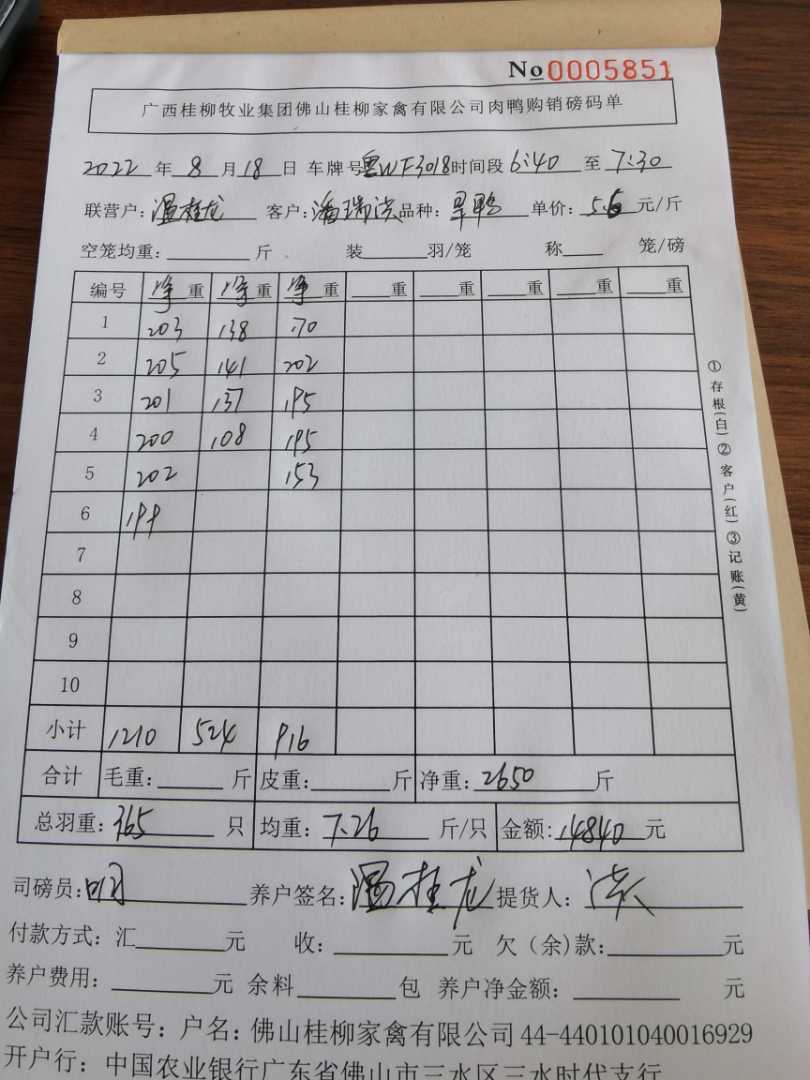 No 0005851
广西桂柳牧业集团佛山桂柳家禽有限公司肉鸭购销磅码单
2022 年 8 月 18 日 车牌号 粤WF3018 时间段 6:40 至 7:30
联营户: 温桂龙 客户: 潘瑞洪 品种: 旱鸭 单价: 5.6 元/斤
空笼均重: 斤 装 羽/笼 称 笼/磅
编号 净重 净重 净重 重 重 重 重 重
1 203 138 170
2 205 141 202
3 201 137 195
4 200 108 195
5 202 153
6 199
7
8
9
10
小计 1210 524 916
合计 毛重: 斤 皮重: 斤 净重: 2650 斤
总羽重: 365 只 均重: 7.26 斤/只 金额: 14840 元
司磅员: 养户签名: 温桂龙 提货人:
付款方式: 汇 元 收: 元 欠(余)款: 元
养户费用: 元 余料 包 养户净金额: 元
公司汇款账号: 户名: 佛山桂柳家禽有限公司 44-440101040016929
开户行: 中国农业银行广东省佛山市三水区三水时代支行
①存根(白)②客户(红)③记账(黄)